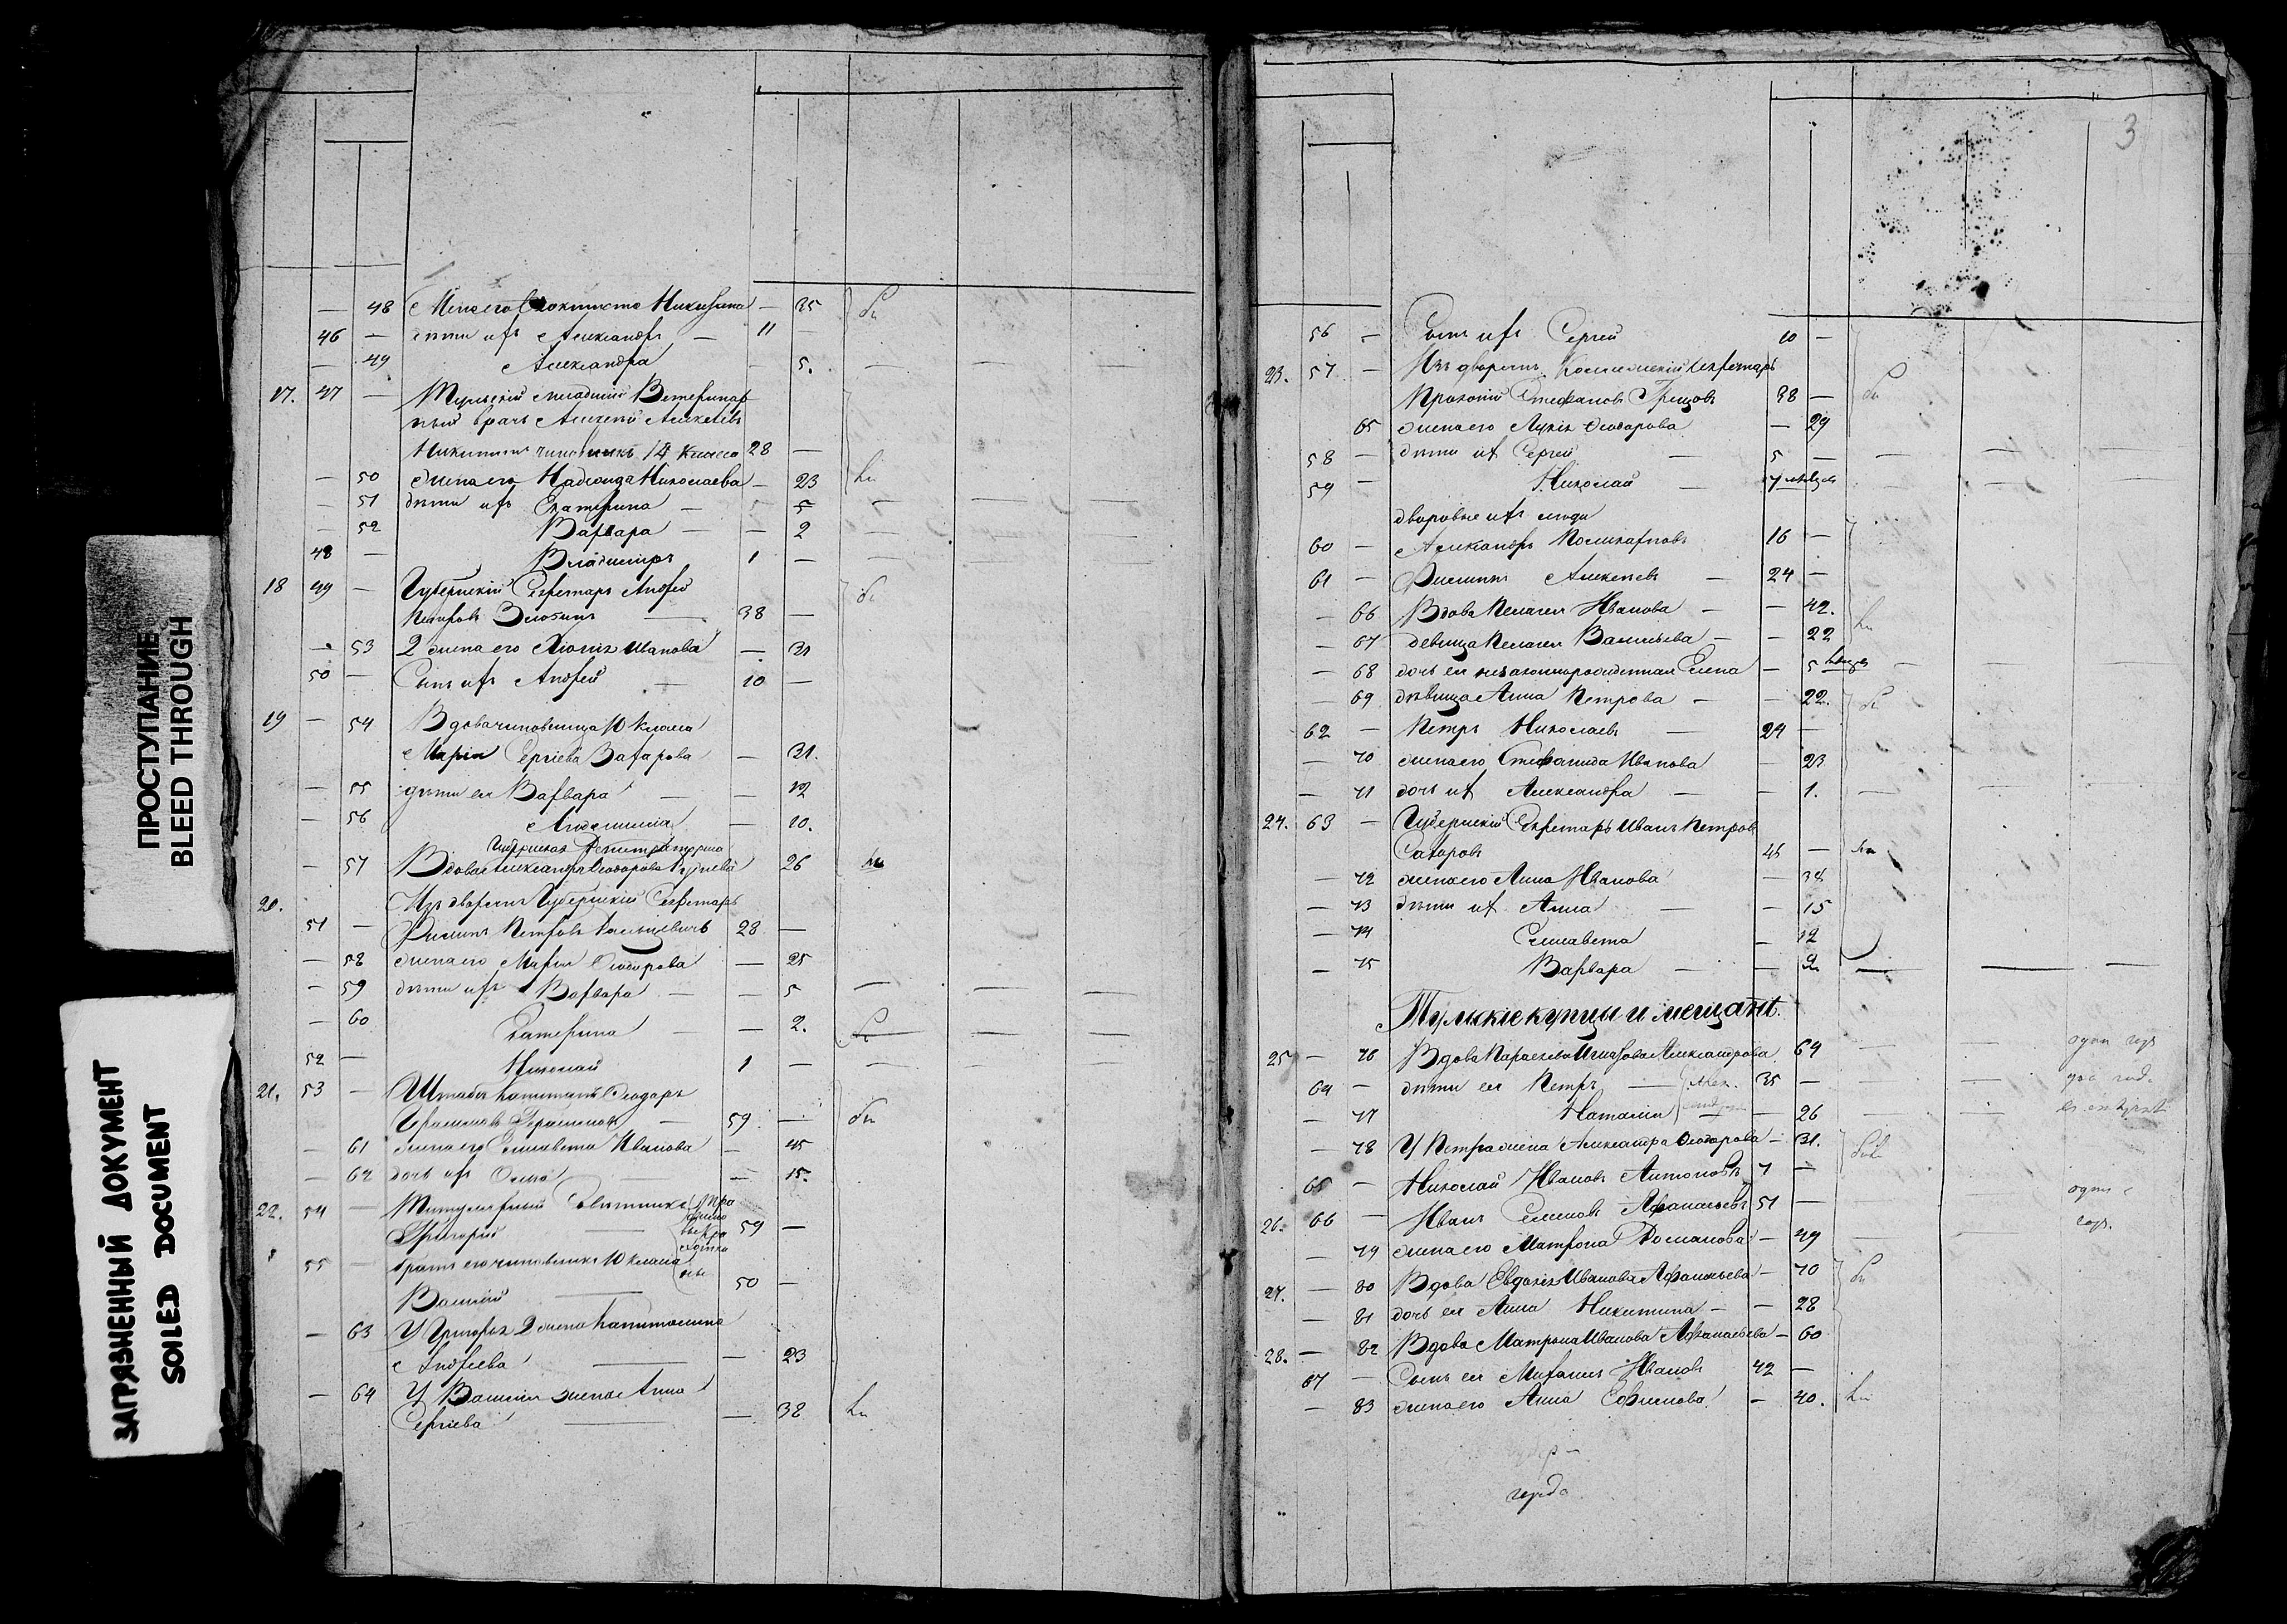 ПРОСТУПАНИЕ
BLEED THROUGH
ЗАГРЯЗНЕННЫЙ ДОКУМЕНТ
SOILED DOCUMENT
— 48 Никифорова — 35
46 — дѣти ихъ Александръ — 11 —
— 49 Александра — 5.
17. 47 — Тульскій младшій Ветеринар
ный врачъ Алексей Алексѣевъ
Никитинъ чиновникъ 14 класса 28 —
— 50 жена его Надежда Николаева — 23
— 51 дѣти ихъ Екатерина — 5
— 52 Варвара — — 2
48 — Владимиръ 1 —
18 49 — Губернскій Секретарь Андрей
Петровъ Злобинъ — 38 —
— 53 2 жена его Ивановa — 31
50 — Сынъ ихъ Андрей — 10 —
19 — 54 Вдова чиновница 10 класса
Марія Сергіева Захарова — 31.
— 55 дѣти ея Варвара — — 12
— 56 — 10.
— 57 Вдова Александра Ѳеодорова 26
20. Изъ дворянъ Губернскій Секретарь
51 — Филипъ Петровъ 28 —
— 58 жена его Марія Ѳеодорова — 25
— 59 дѣти ихъ Варвара — — 5
— 60 Екатерина — — 2.
52 — Николай 1 —
21. 53 — Штабсъ капитанъ Ѳеодоръ
Герасимовъ — 59 —
— 61 жена его Елисавета Иванова — 45
— 62 дочь ихъ — 15.
22. 54 — Титулярный Совѣтникъ
Григорій — 59 —
55 — братъ его чиновникъ 10 класса
Василій — 50 —
— 63 У Григорья 2 жена Капитолина
Андреева — — 23
— 64 У Василія жена Анна
Сергіева — — 38
3
56 — Сынъ ихъ Сергей 10 —
23. 57 — Изъ дворянъ Коллежскій Секретарь
Прокопій Стефановъ 38 —
65 жена его Ѳеодорова — 29
58 — дѣти ихъ Сергей — 5 —
59 — Николай —
дворовые ихъ люди
60 — Александръ Поликарповъ 16 —
61 — Филиппъ Алексѣевъ — 24 —
— 66 Вдова Пелагея Иванова — — 42.
— 67 Девица Пелагея Васильева — — 22
— 68 дочь ея незаконнорожденная Елена — 5
— 69 дѣвица Анна Петрова — — 22.
62 — Петръ Николаевъ — 24 —
— 70 жена его Стефанида Иванова — 23
— 71 дочь их Александра — — 1.
24. 63 — Губернскій Секретарь Иванъ Петровъ
Сахаровъ 45 —
— 72 жена его Анна Иванова — 38
— 73 дѣти их Анна — — 15
— 74 Елисавета — 12
— 75 Варвара — — 2
Тульскіе купцы и мещанѣ.
25 — 76 Вдова Параскева Александрова 69
64 — дѣти ея Петръ — 35 —
— 77 Наталія — 26
— 78 У Петра жена Александра Ѳеодорова — 31.
65 — Николай Ивановъ Антоновъ 7 —
26. 66 — Иванъ Семеновъ Афанасьевъ 51 —
— 79 жена его Матрона Романова — 49
27. — 80 Вдова Евдокія Иванова Афанасьева — 70
— 81 дочь ея Анна Никитина — — 28
28. — 82 Вдова Матрона Иванова Афанасьева — 60
67 — Сынъ ея Ивановъ 42 —
— 83 жена его Анна Ефимова — 40.